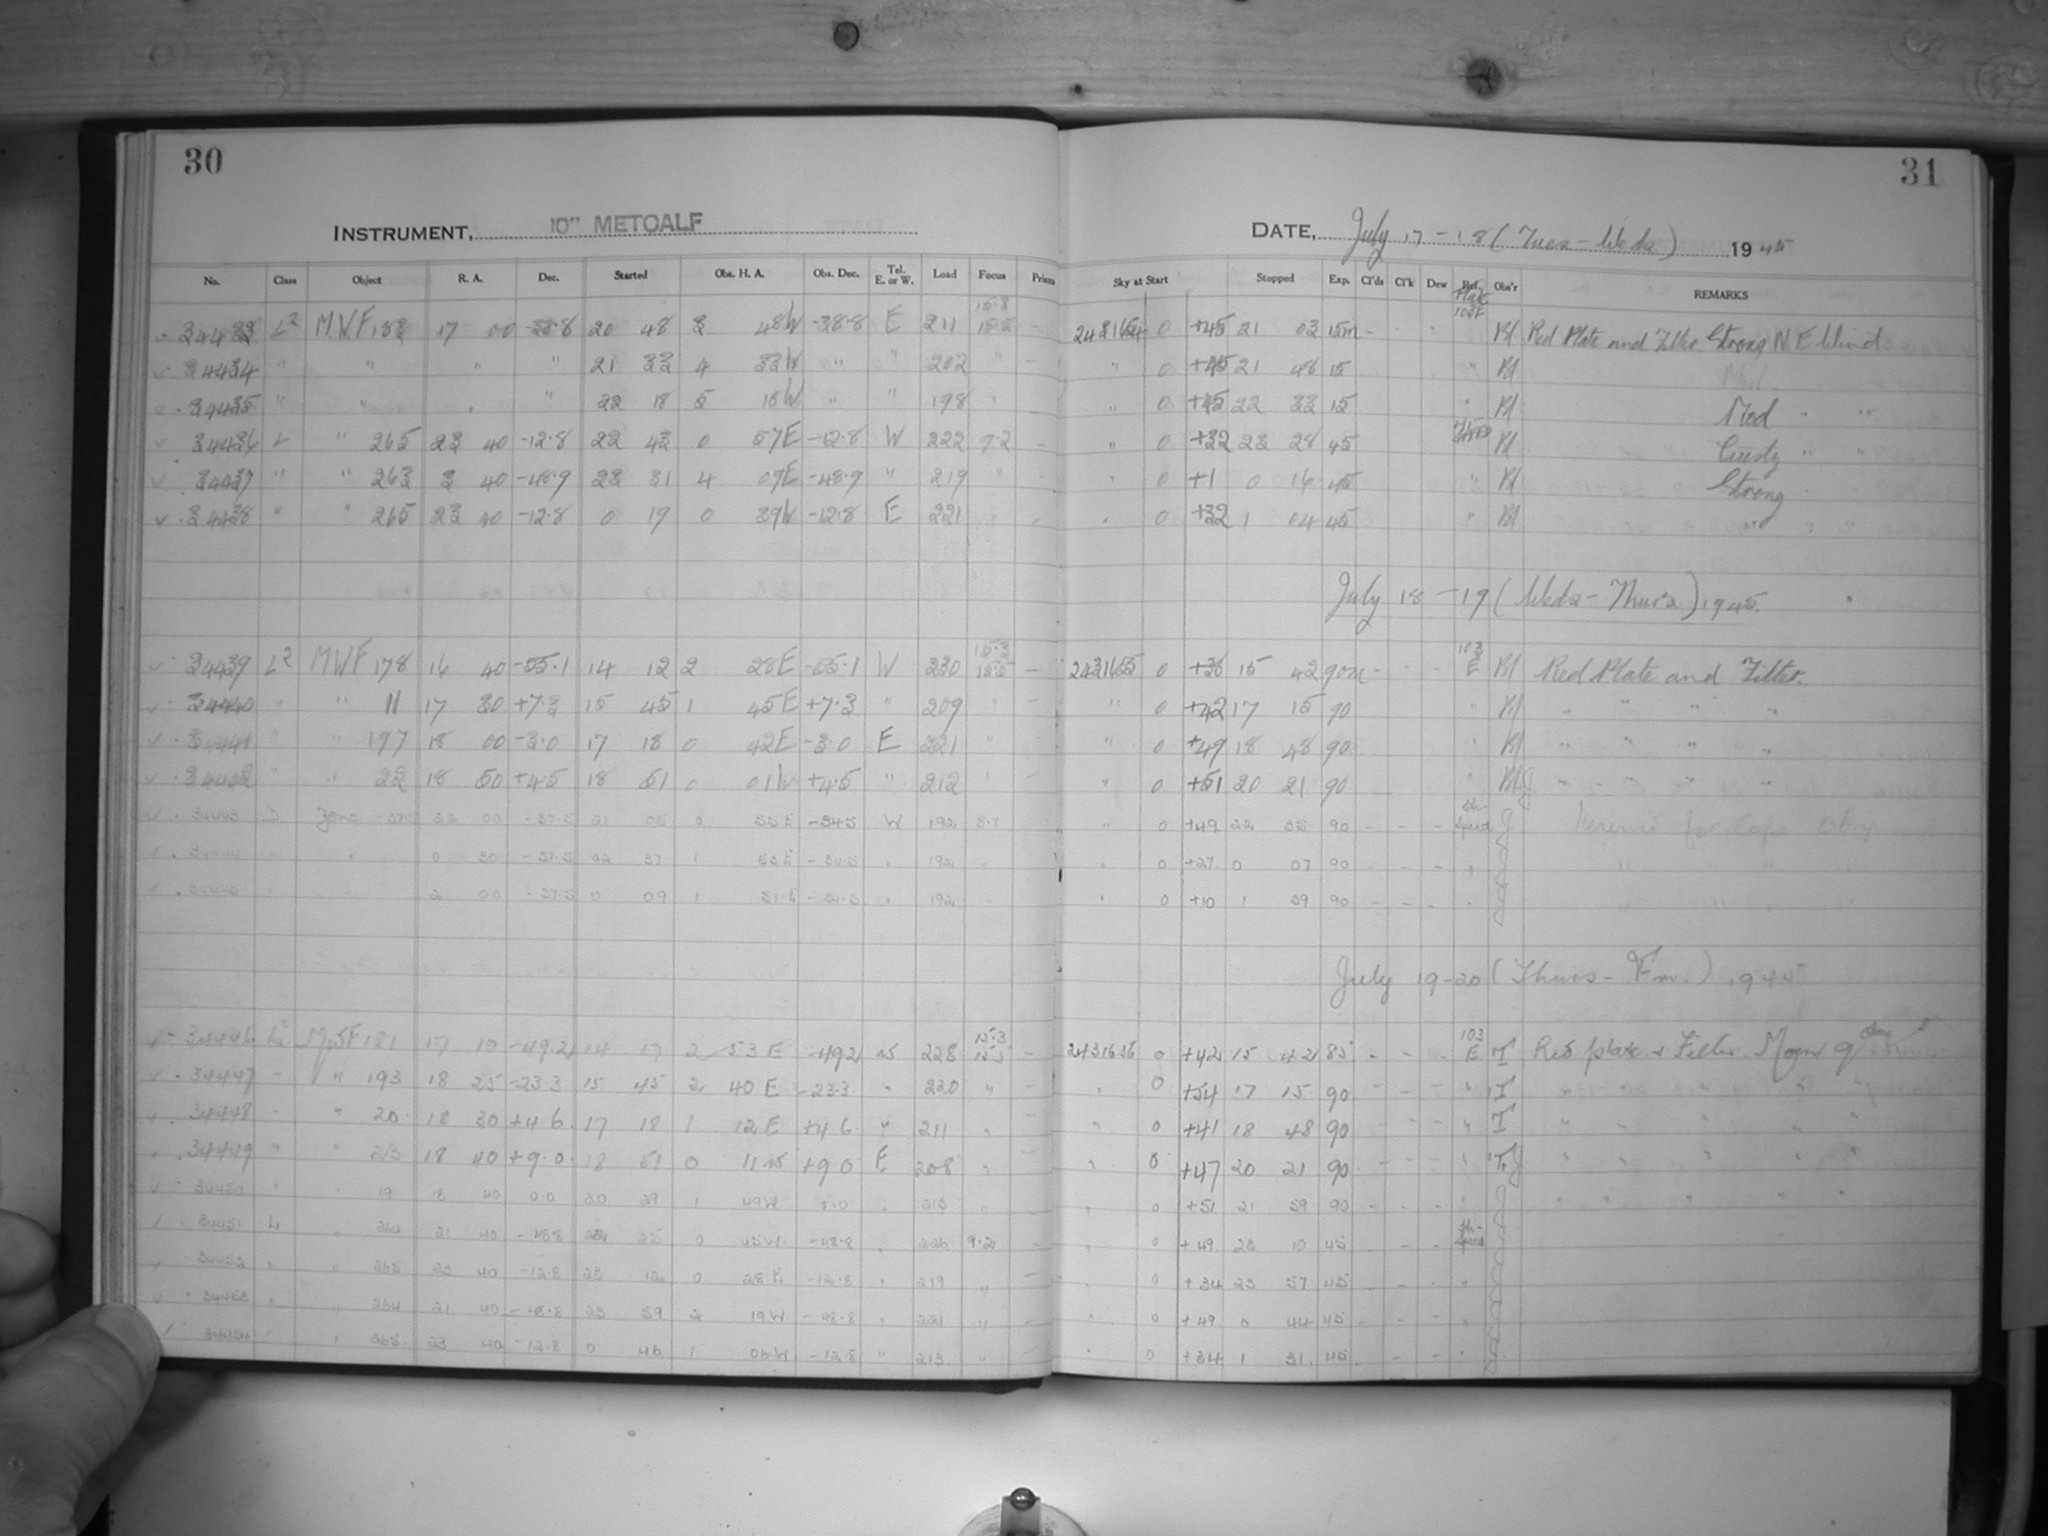 30 31
INSTRUMENT, 10" METCALF DATE, July 17-18 (Tues-Weds) 1945
No. Class Object R. A. Dec. Started Obs. H. A. Obs. Dec. Tel. E. or W. Load Focus Prism Sky at Start Stopped Exp. Cl'ds Cl'k Dew Ref. Obs'r REMARKS
34433 L2 M.W.F 183 17 00 -38.8 20 48 3 48W -38.8 E 211 15.3 15.5 - 2431654 0 +45 21 03 15m - - Red Plate and Filter Strong N E Wind
34434 " " " " 21 33 4 33W " " 202 " - " 0 +45 21 48 15 "
34435 " " " " 22 18 5 18W " " 198 " " 0 +45 22 33 15 " Mod " "
34436 L " 265 23 40 -12.8 22 43 0 57E -12.8 W 222 9.2 - " 0 +32 23 28 45 Gusty " "
34437 " " 263 3 40 -48.9 23 31 4 09E -48.9 " 219 " - " 0 +1 0 16 45 " Strong
34438 " " 265 23 40 -12.8 0 19 0 39W -12.8 E 221 " - " 0 +32 1 04 45 " "
July 18-19 (Weds-Thurs) 1945.
34439 L2 MWF 178 16 40 -55.1 14 12 2 28E -55.1 W 230 15.3 15.5 - 2431655 0 +38 15 42 90m - - - 103 E Red Plate and Filter.
34440 " " 11 17 30 +7.3 15 45 1 45E +7.3 " 209 " - " 0 +42 17 15 90 " " " " "
34441 " " 197 18 00 -3.0 17 18 0 42E -3.0 E 221 " - " 0 +49 18 48 90 " " " " "
34442 " " 22 18 50 +4.5 18 51 0 01W +4.5 " 212 " " 0 +51 20 21 90 " " " " "
34443 D Zone 22 00 -37.5 21 05 0 55E -34.5 W 192 8.7 " 0 +49 22 35 90 - - - J for Cape Obsy
34444 " " 0 30 -37.5 22 37 1 53E -34.5 " 192 " " 0 +27 0 07 90 - - - "
34445 " " 2 00 -37.5 0 09 1 51E -34.5 " 192 " " 0 +10 1 39 90 - - - "
July 19-20 (Thurs-Fri.) 1945
34446 L2 MWF 181 17 10 -49.2 14 17 2 53E -49.2 W 228 15.3 15.5 - 2431656 0 +42 15 42 85 - - - 103 E T Red plate + Filter. Moon 9
34447 " " 193 18 25 -23.3 15 45 2 40E -23.3 " 220 " - " 0 +54 17 15 90 - - - " T " " " "
34448 " " 20 18 30 +4.6 17 18 1 12E +4.6 " 211 " " 0 +41 18 48 90 - - - " T " " " "
34449 " " 23 18 40 +9.0 18 51 0 11W +9.0 E 208 " - " 0 +47 20 21 90 - - - " " " " "
34450 " " 19 18 40 0.0 20 29 1 49W 0.0 " 213 " - " 0 +51 21 59 90 - - - " " " " "
34451 L " 264 21 40 -48.8 22 25 0 45W -48.8 " 226 9.2 - " 0 +49 23 10 45 - - -
34452 " " 265 23 40 -12.8 23 12 0 28E -12.8 " 219 " - " 0 +34 23 57 45 - - - "
34453 " " 264 21 40 -48.8 23 59 2 19W -48.8 " 221 " - " 0 +49 0 44 45 - - - "
34454 " " 265 23 40 -12.8 0 46 1 06W -12.8 " 213 " - " 0 +34 1 31 45 - - - "